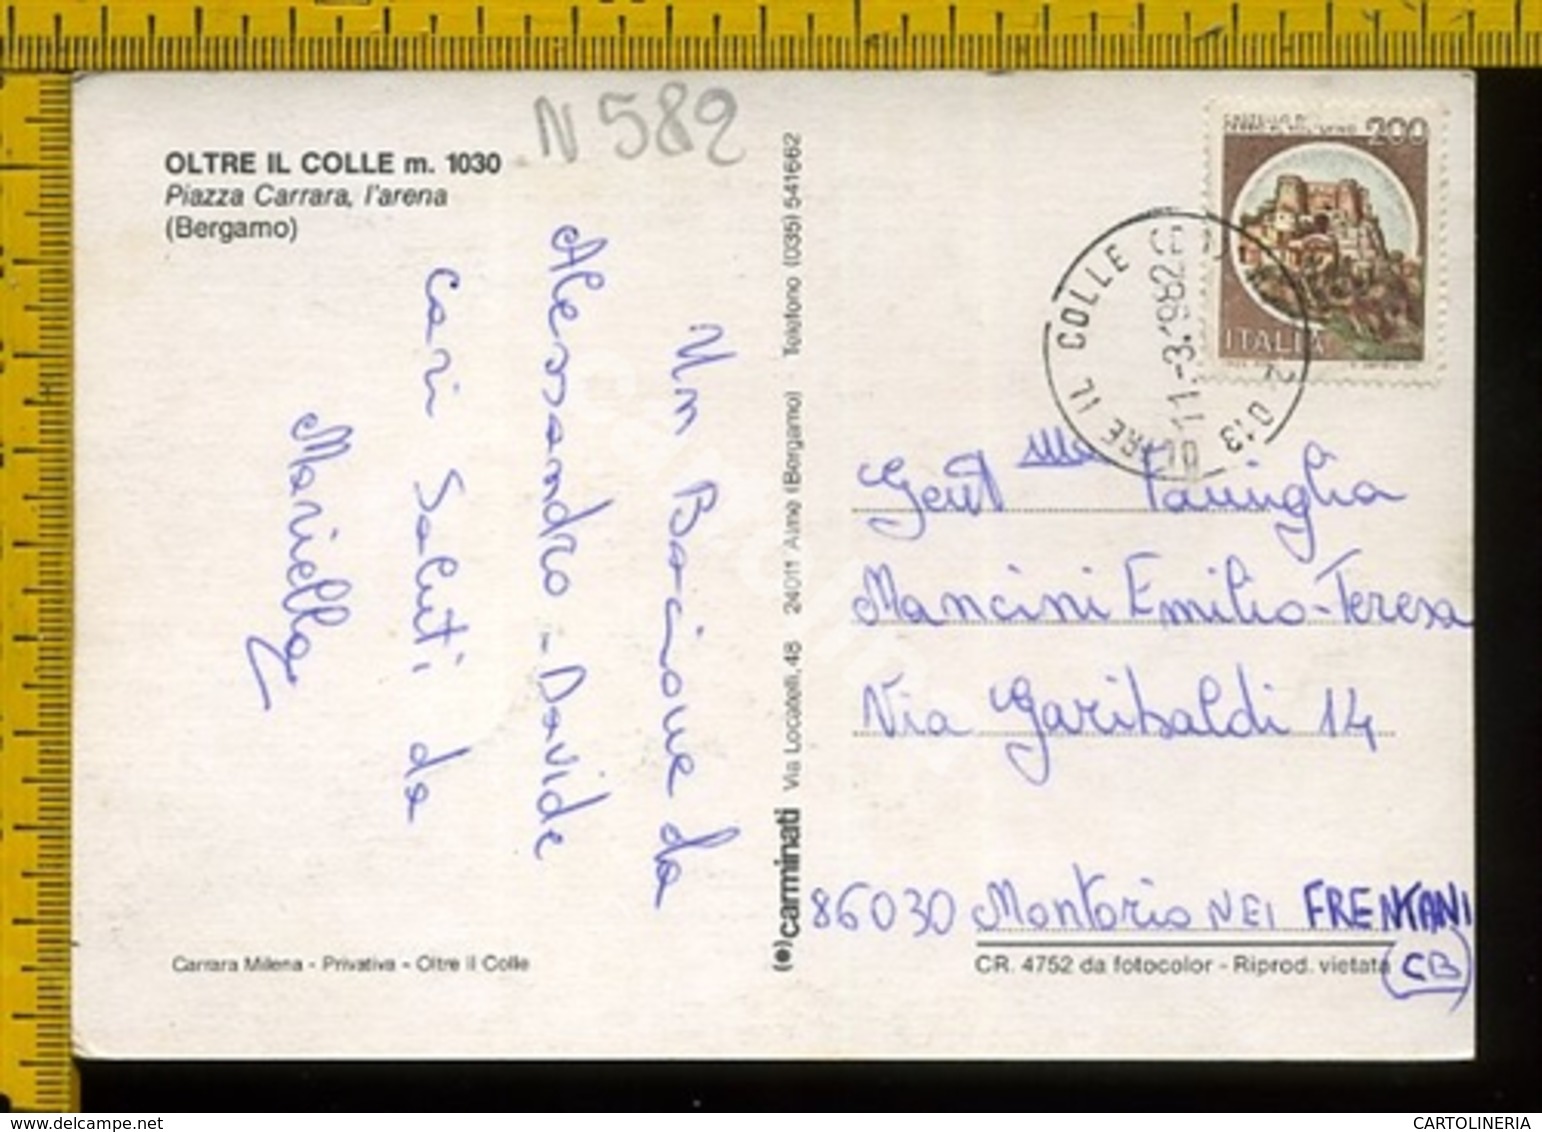 N 582
OLTRE IL COLLE m. 1030
Piazza Carrara, l'arena
(Bergamo)
Un Bacione da
Alessandro - Davide
Cari Saluti da
Mariella
Carrara Milena - Privativa - Oltre il Colle
(•)carminati Via Locatelli, 48 24011 Almè (Bergamo) Telefono (035) 541662
200
ITALIA
OLTRE IL COLLE (BG)
11-3.1982
Gent.ma Famiglia
Mancini Emilio-Teresa
Via Garibaldi 14
86030 Montorio NEI FRENTANI
(CB)
CR. 4752 da fotocolor - Riprod. vietata
www.delcampe.net
CARTOLINERIA